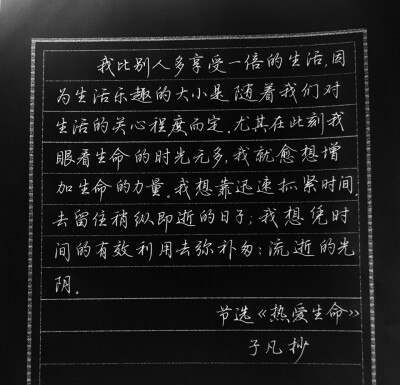 我比别人多享受一倍的生活,因
为生活乐趣的大小是随着我们对
生活的关心程度而定.尤其在此刻我
眼看生命的时光无多,我就愈想增
加生命的力量.我想靠迅速抓紧时间,
去留住稍纵即逝的日子;我想凭时
间的有效利用去弥补匆:流逝的光
阴.
节选《热爱生命》
子凡抄